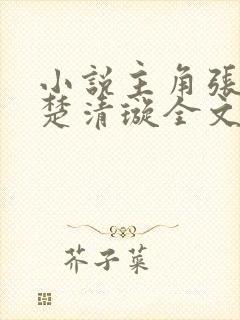 小說主角張
楚清璇全文
芥子菜